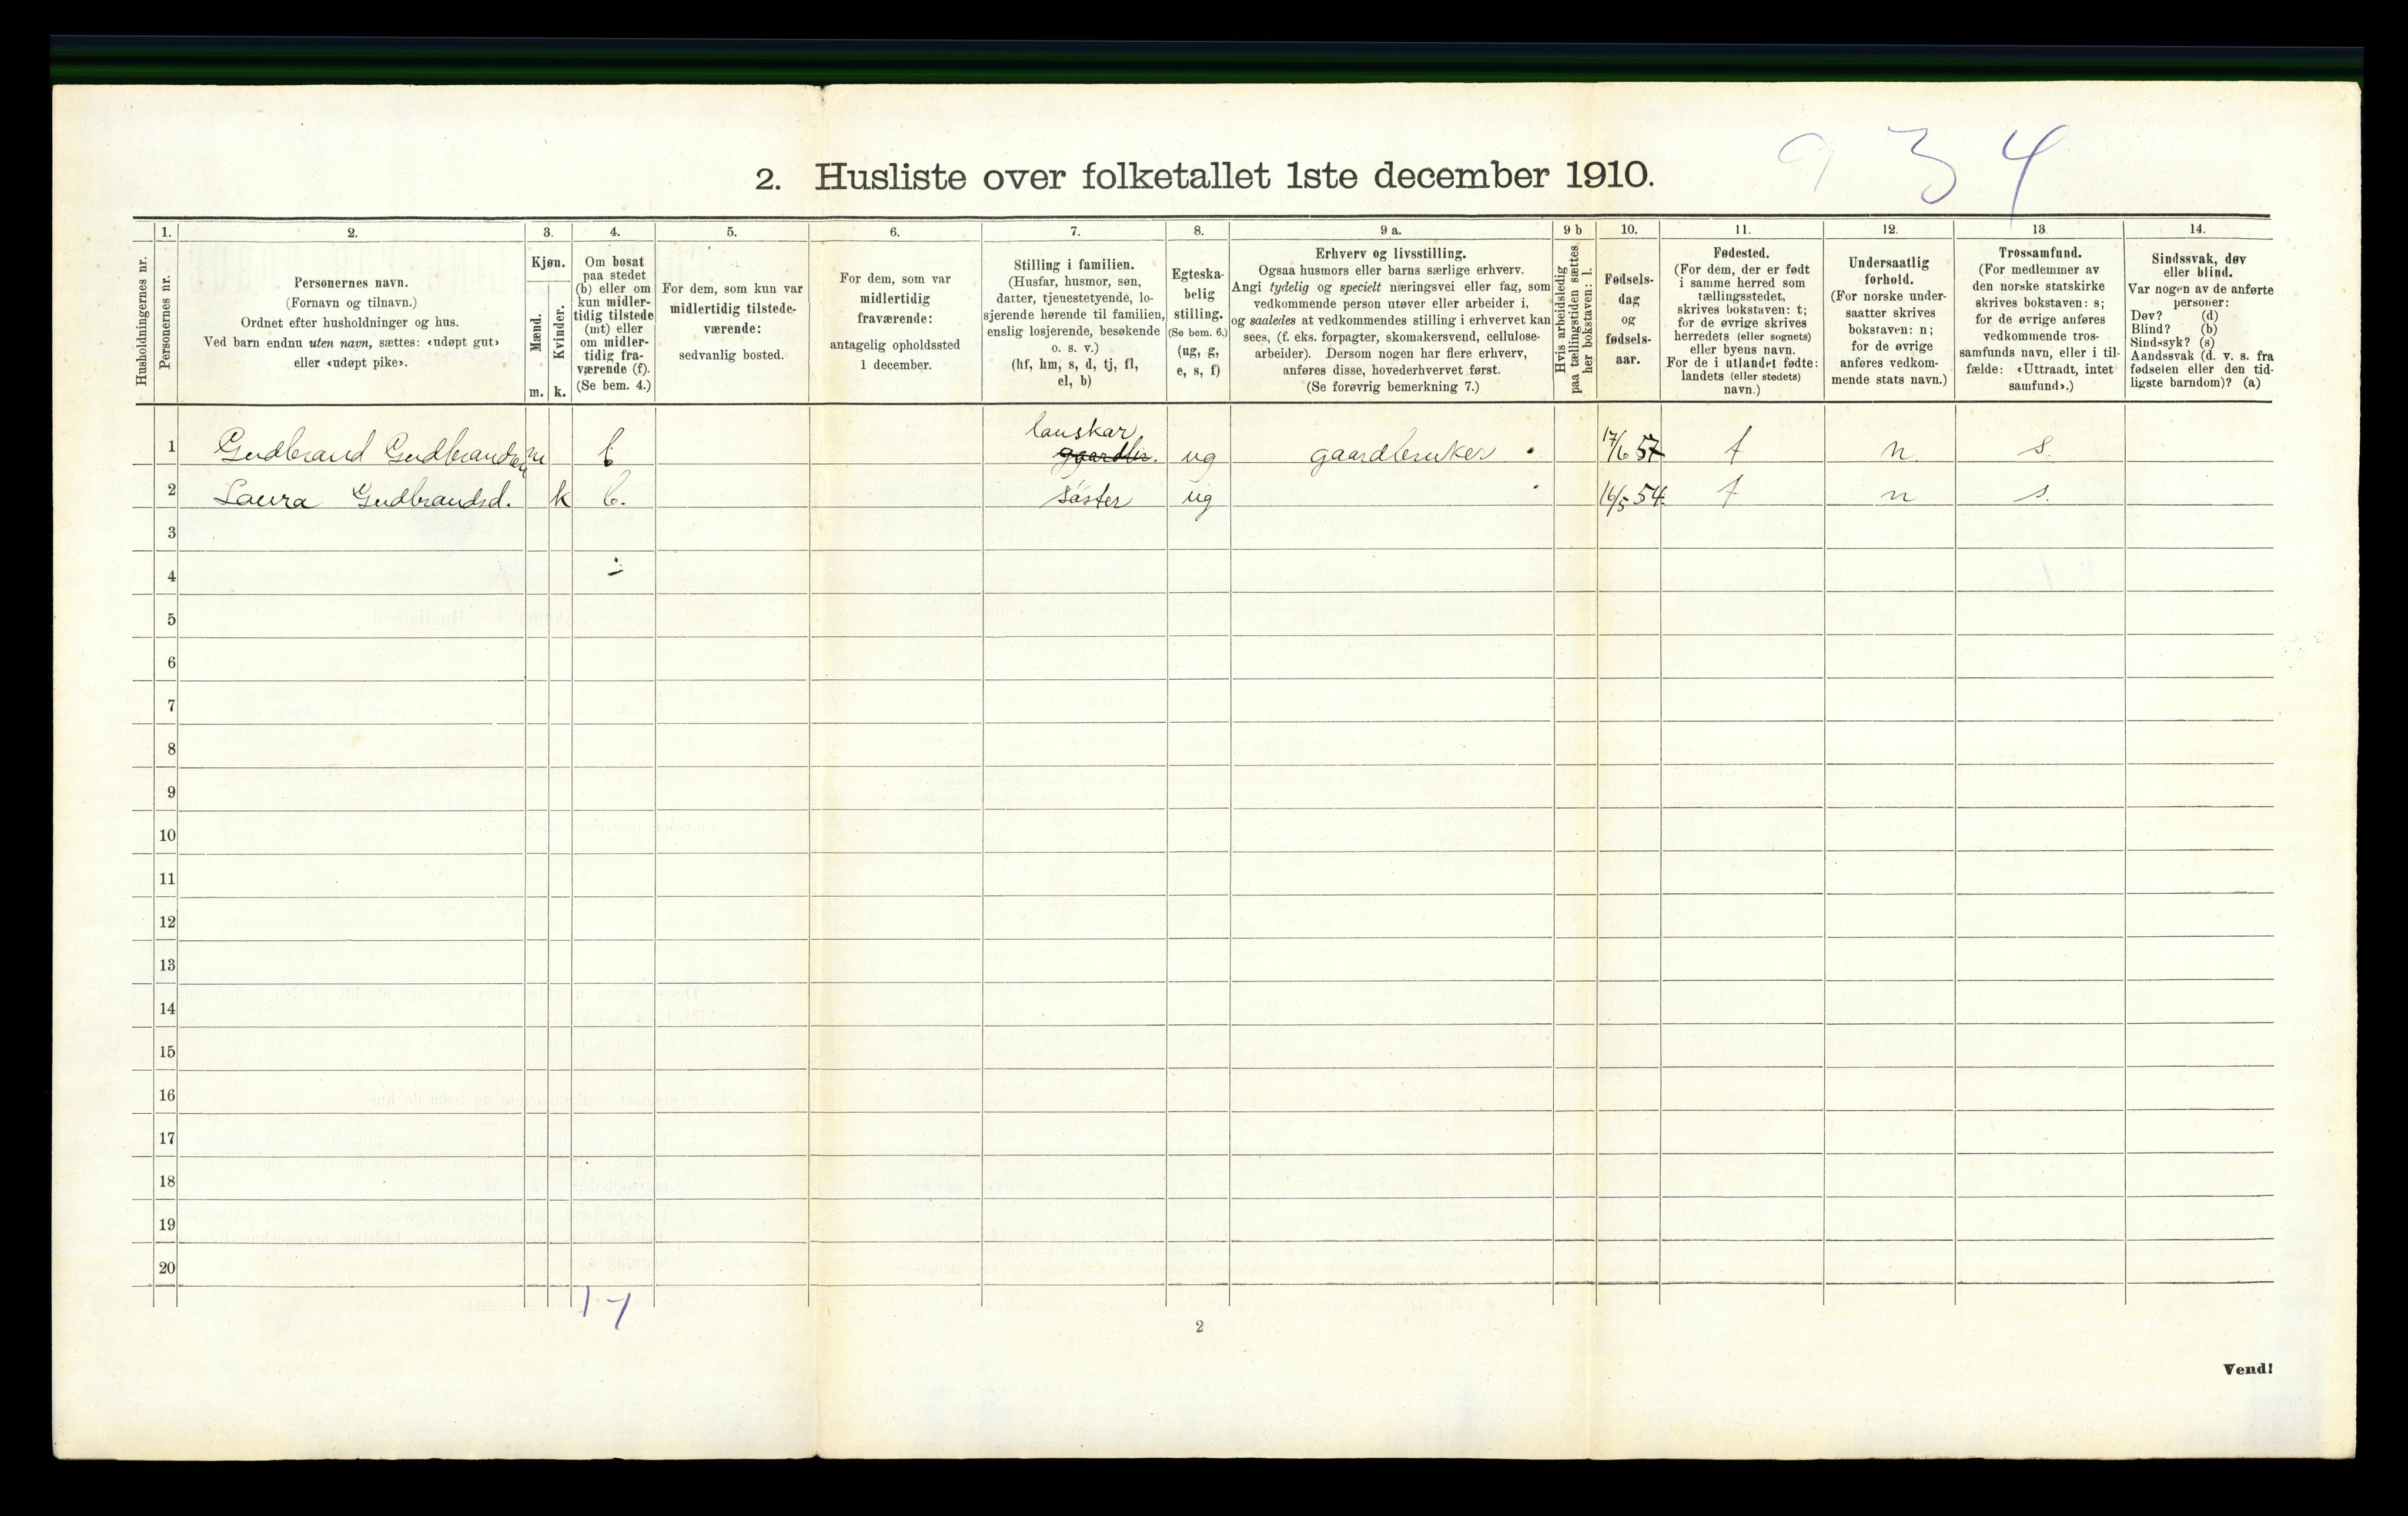 9 3 4
2. Husliste over folketallet 1ste december 1910.
Husholdningernes nr.
1.
Personernes nr.
2.
Personernes navn.
(Fornavn og tilnavn.)
Ordnet efter husholdninger og hus.
Ved barn endnu uten navn, sættes: «udøpt gut»
eller «udøpt pike».
3.
Kjøn.
Mænd.
Kvinder.
m. k.
4.
Om bosat
paa stedet
(b) eller om
kun midler-
tidig tilstede
(mt) eller
om midler-
tidig fra-
værende (f).
(Se bem. 4.)
5.
For dem, som kun var
midlertidig tilstede-
værende:
sedvanlig bosted.
6.
For dem, som var
midlertidig
fraværende:
antagelig opholdssted
1 december.
7.
Stilling i familien.
(Husfar, husmor, søn,
datter, tjenestetyende, lo-
sjerende hørende til familien,
enslig losjerende, besøkende
o. s. v.)
(hf, hm, s, d, tj, fl,
el, b)
8.
Egteska-
belig
stilling.
(Se bem. 6.)
(ug, g,
e, s, f)
9 a.
Erhverv og livsstilling.
Ogsaa husmors eller barns særlige erhverv.
Angi tydelig og specielt næringsvei eller fag, som
vedkommende person utøver eller arbeider i,
og saaledes at vedkommendes stilling i erhvervet kan
sees, (f. eks. forpagter, skomakersvend, cellulose-
arbeider). Dersom nogen har flere erhverv,
anføres disse, hovederhvervet først.
(Se forøvrig bemerkning 7.)
9 b
Hvis arbeidsledig
paa tællingstiden sættes
her bokstaven: l.
10.
Fødsels-
dag
og
fødsels-
aar.
11.
Fødested.
(For dem, der er født
i samme herred som
tællingsstedet,
skrives bokstaven: t;
for de øvrige skrives
herredets (eller sognets)
eller byens navn.
For de i utlandet fødte:
landets (eller stedets)
navn.)
12.
Undersaatlig
forhold.
(For norske under-
saatter skrives
bokstaven: n;
for de øvrige
anføres vedkom-
mende stats navn.)
13.
Trossamfund.
(For medlemmer av
den norske statskirke
skrives bokstaven: s;
for de øvrige anføres
vedkommende tros-
samfunds navn, eller i til-
fælde: «Uttraadt, intet
samfund».)
14.
Sindssvak, døv
eller blind.
Var nogen av de anførte
personer:
Døv? (d)
Blind? (b)
Sindssyk? (s)
Aandssvak (d. v. s. fra
fødselen eller den tid-
ligste barndom)? (a)
lauskar
1 Gudbrand Gudbrandsen m b gaardbr. ug gaardbruker 17/6 57 t n. s.
2 Laura Gudbrandsd. k b. søster ug 16/5 54 t n s.
3
4
5
6
7
8
9
10
11
12
13
14
15
16
17
18
19
20
1 - 1
2
Vend!